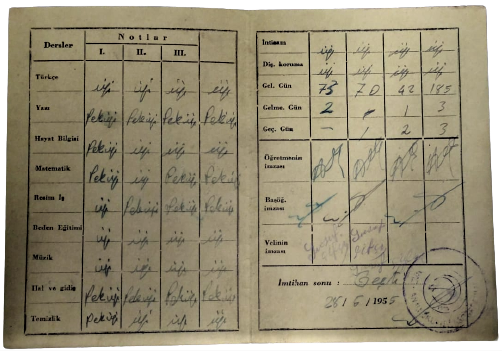 Dersler Notlar
I. II. III.
Türkçe iyi iyi iyi iyi
Yazı Pekiyi Pekiyi Pekiyi Pekiyi
Hayat Bilgisi Pekiyi iyi iyi iyi
Matematik Pekiyi iyi Pekiyi Pekiyi
Resim İş iyi Pekiyi Pekiyi Pekiyi
Beden Eğitimi iyi iyi iyi iyi
Müzik iyi iyi iyi iyi
Hal ve gidiş Pekiyi Pekiyi Pekiyi Pekiyi
Temizlik Pekiyi iyi iyi iyi
İntizam iyi iyi iyi iyi
Diş. koruma iyi iyi iyi iyi
Gel. Gün 73 70 42 185
Gelme. Gün 2 - 1 3
Geç. Gün - 1 2 3
Öğretmenin imzası
Başöğ. imzası
Velinin imzası
İmtihan sonu : Geçti
28/5/1955